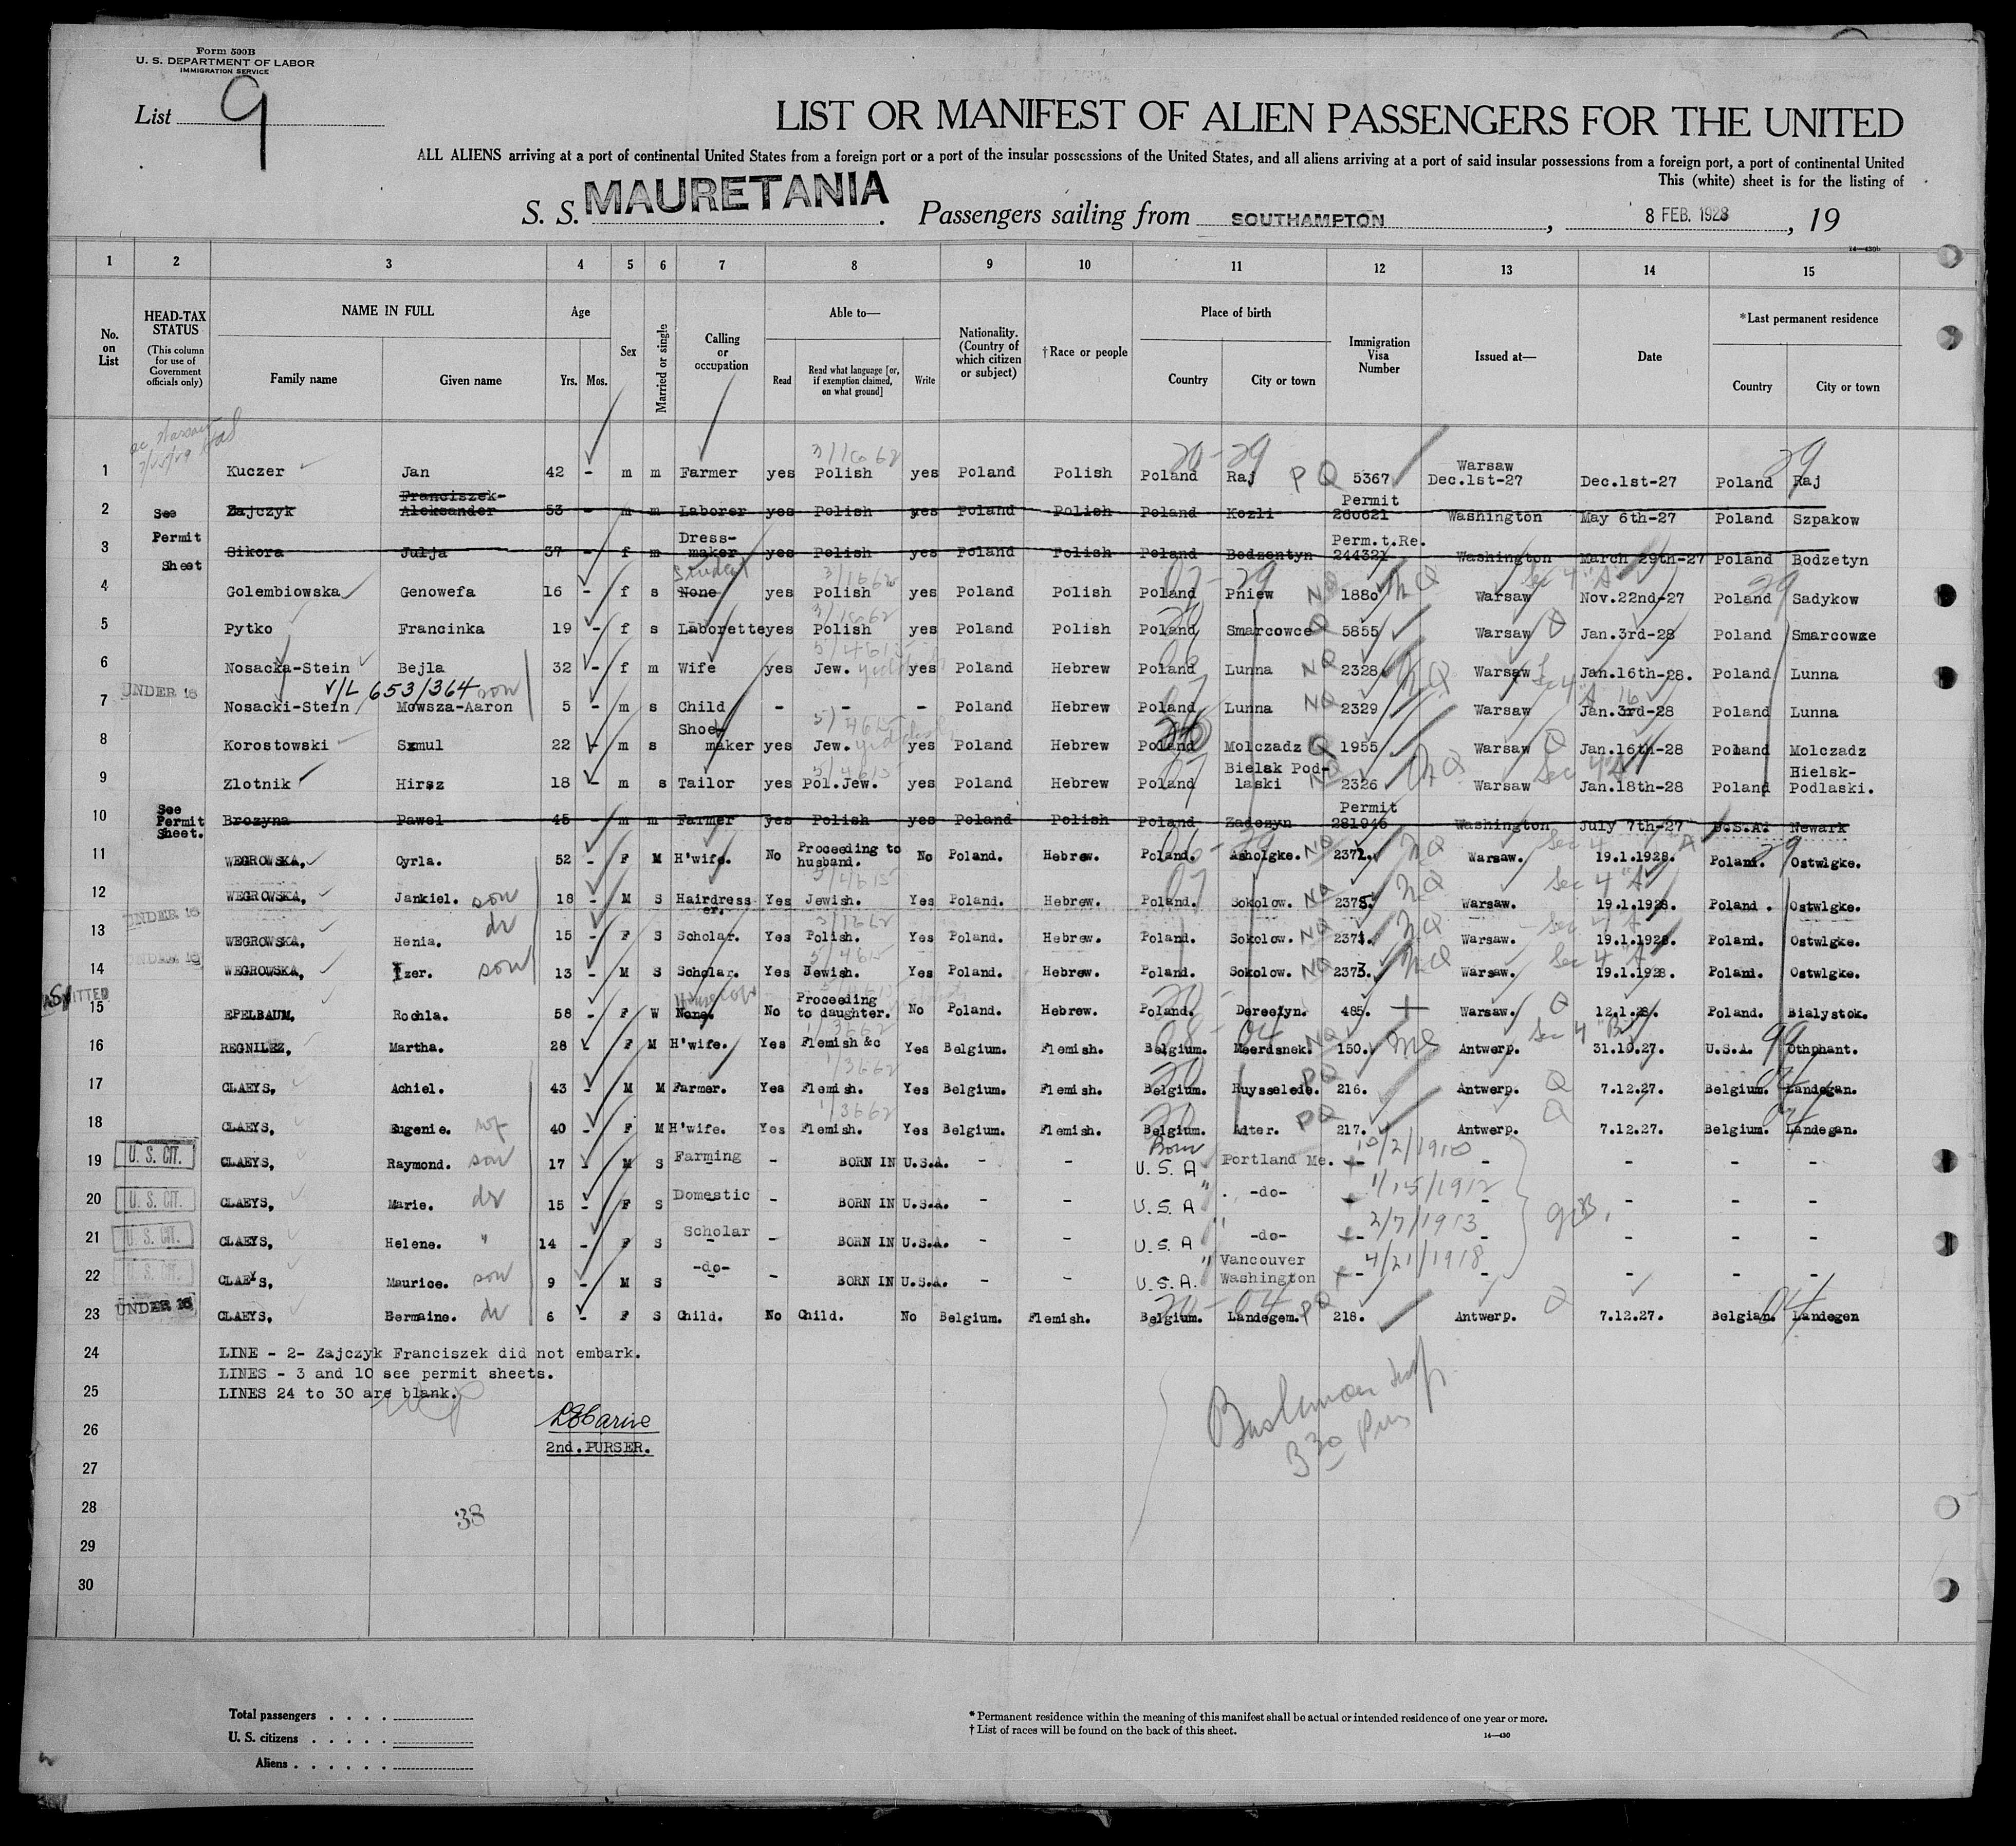 Form 500B
U. S. DEPARTMENT OF LABOR
IMMIGRATION SERVICE
List 9
LIST OR MANIFEST OF ALIEN PASSENGERS FOR THE UNITED
ALL ALIENS arriving at a port of continental United States from a foreign port or a port of the insular possessions of the United States, and all aliens arriving at a port of said insular possessions from a foreign port, a port of continental United
This (white) sheet is for the listing of
S. S. MAURETANIA. Passengers sailing from SOUTHAMPTON, 8 FEB. 1928, 19
14—430b
1 2 3 4 5 6 7 8 9 10 11 12 13 14 15
No. on List
HEAD-TAX STATUS (This column for use of Government officials only)
NAME IN FULL Family name Given name
Age Yrs. Mos.
Sex
Married or single
Calling or occupation
Able to— Read Read what language [or, if exemption claimed, on what ground] Write
Nationality. (Country of which citizen or subject)
†Race or people
Place of birth Country City or town
Immigration Visa Number
Issued at—
Date
*Last permanent residence Country City or town
1 Kuczer Jan 42 - m m Farmer yes Polish yes Poland Polish Poland Raj PQ 5367 Warsaw Dec.1st-27 Dec.1st-27 Poland Raj
2 See Zajczyk Franciszek-Aleksander 53 - m m Laborer yes Polish yes Poland Polish Poland Kozli Permit 260621 Washington May 6th-27 Poland Szpakow
3 Permit Sheet Sikora Julja 37 - f m Dress-maker yes Polish yes Poland Polish Poland Bodzentyn Perm.t.Re. 244321 Washington March 29th-27 Poland Bodzetyn
4 Golembiowska Genowefa 16 - f s Student None yes Polish yes Poland Polish Poland Pniew NQ 1880 NQ Warsaw Sec 4 "A" Nov.22nd-27 Poland Sadykow
5 Pytko Francinka 19 - f s Laborette yes Polish yes Poland Polish Poland Smarcowce Q 5855 Warsaw Q Jan.3rd-28 Poland Smarcowze
6 Nosacka-Stein Bejla 32 - f m Wife yes Jew. yes Poland Hebrew Poland Lunna NQ 2328. NQ Warsaw Jan.16th-28. Poland Lunna
7 UNDER 16 V/L 653/364 son Nosacki-Stein Mowsza-Aaron 5 - m s Child - - - Poland Hebrew Poland Lunna NQ 2329 Warsaw 16 Jan.3rd-28 Poland Lunna
8 Korostowski Szmul 22 - m s Shoe-maker yes Jew. yes Poland Hebrew Poland Molczadz Q 1955 Warsaw Q Jan.16th-28 Poland Molczadz
9 Zlotnik Hirsz 18 - m s Tailor yes Pol.Jew. yes Poland Hebrew Poland Bielsk Pod-laski NQ 2326 NQ Warsaw Sec 4 "A" Jan.18th-28 Poland Hielsk-Podlaski.
10 See Permit Sheet. Brozyna Pawel 45 - m m Farmer yes Polish yes Poland Polish Poland Zadczyn Permit 281946 Washington July 7th-27 U.S.A. Newark
11 WEGROWSKA, Cyrla. 52 - F M H'wife. No Proceeding to husband. No Poland. Hebrew. Poland. Asholgke. NQ 2372. NQ Warsaw. Sec 4 "A" 19.1.1928. Poland. Ostwlgke.
12 WEGROWSKA, Jankiel. son 18 - M S Hairdresser. Yes Jewish. Yes Poland. Hebrew. Poland. Sokolow. NQ 2375. NQ Warsaw. Sec 4 "A" 19.1.1928. Poland. Ostwlgke.
13 UNDER 16 WEGROWSKA, Henia. dr 15 - F S Scholar. Yes Polish. Yes Poland. Hebrew. Poland. Sokolow. NQ 2374. NQ Warsaw. Sec 4 "A" 19.1.1928. Poland. Ostwlgke.
14 UNDER 16 WEGROWSKA, Izer. son 13 - M S Scholar. Yes Jewish. Yes Poland. Hebrew. Poland. Sokolow. NQ 2373. NQ Warsaw. Sec 4 "A" 19.1.1928. Poland. Ostwlgke.
15 EPELBAUM, Rochla. 58 - F W None. No Proceeding to daughter. No Poland. Hebrew. Poland. Dereelyn. 485. Warsaw. Q 12.1.28. Poland. Bialystok.
16 REGNILEZ, Martha. 28 - F M H'wife. Yes Flemish &c Yes Belgium. Flemish. Belgium. Meerdsnek. NQ 150. NQ Antwerp. Sec 4 "B" 31.10.27. U.S.A. Othphant.
17 CLAEYS, Achiel. 43 - M M Farmer. Yes Flemish. Yes Belgium. Flemish. Belgium. Ruysselede. PQ 216. Antwerp. Q 7.12.27. Belgium. Landegan.
18 CLAEYS, Eugenie. wf 40 - F M H'wife. Yes Flemish. Yes Belgium. Flemish. Belgium. Adter. PQ 217. Antwerp. Q 7.12.27. Belgium. Landegan.
19 U. S. CIT. CLAEYS, Raymond. son 17 - M S Farming - BORN IN U.S.A. - - Born U.S.A Portland Me. 10/2/1910 - - - -
20 U. S. CIT. CLAEYS, Marie. dr 15 - F S Domestic - BORN IN U.S.A. - - U.S.A " -do- 1/15/1912 - - - -
21 U. S. CIT. CLAEYS, Helene. " 14 - F S Scholar - BORN IN U.S.A. - - U.S.A " -do- 2/7/1913 - - - -
22 U. S. CIT. CLAEYS, Maurice. son 9 - M S -do- - BORN IN U.S.A. - - U.S.A. " Vancouver Washington 4/21/1918 - - - -
23 UNDER 16 CLAEYS, Germaine. dr 6 - F S Child. No Child. No Belgium. Flemish. Belgium. Landegem. PQ 218. Antwerp. Q 7.12.27. Belgian. Landegen
24 LINE - 2- Zajczyk Franciszek did not embark.
LINES - 3 and 10 see permit sheets.
25 LINES 24 to 30 are blank.
26
2nd. PURSER.
27
28 38
29
30
3 30 Pm
Total passengers . . . .
U. S. citizens . . . . .
Aliens . . . . . .
* Permanent residence within the meaning of this manifest shall be actual or intended residence of one year or more.
† List of races will be found on the back of this sheet.
14—430